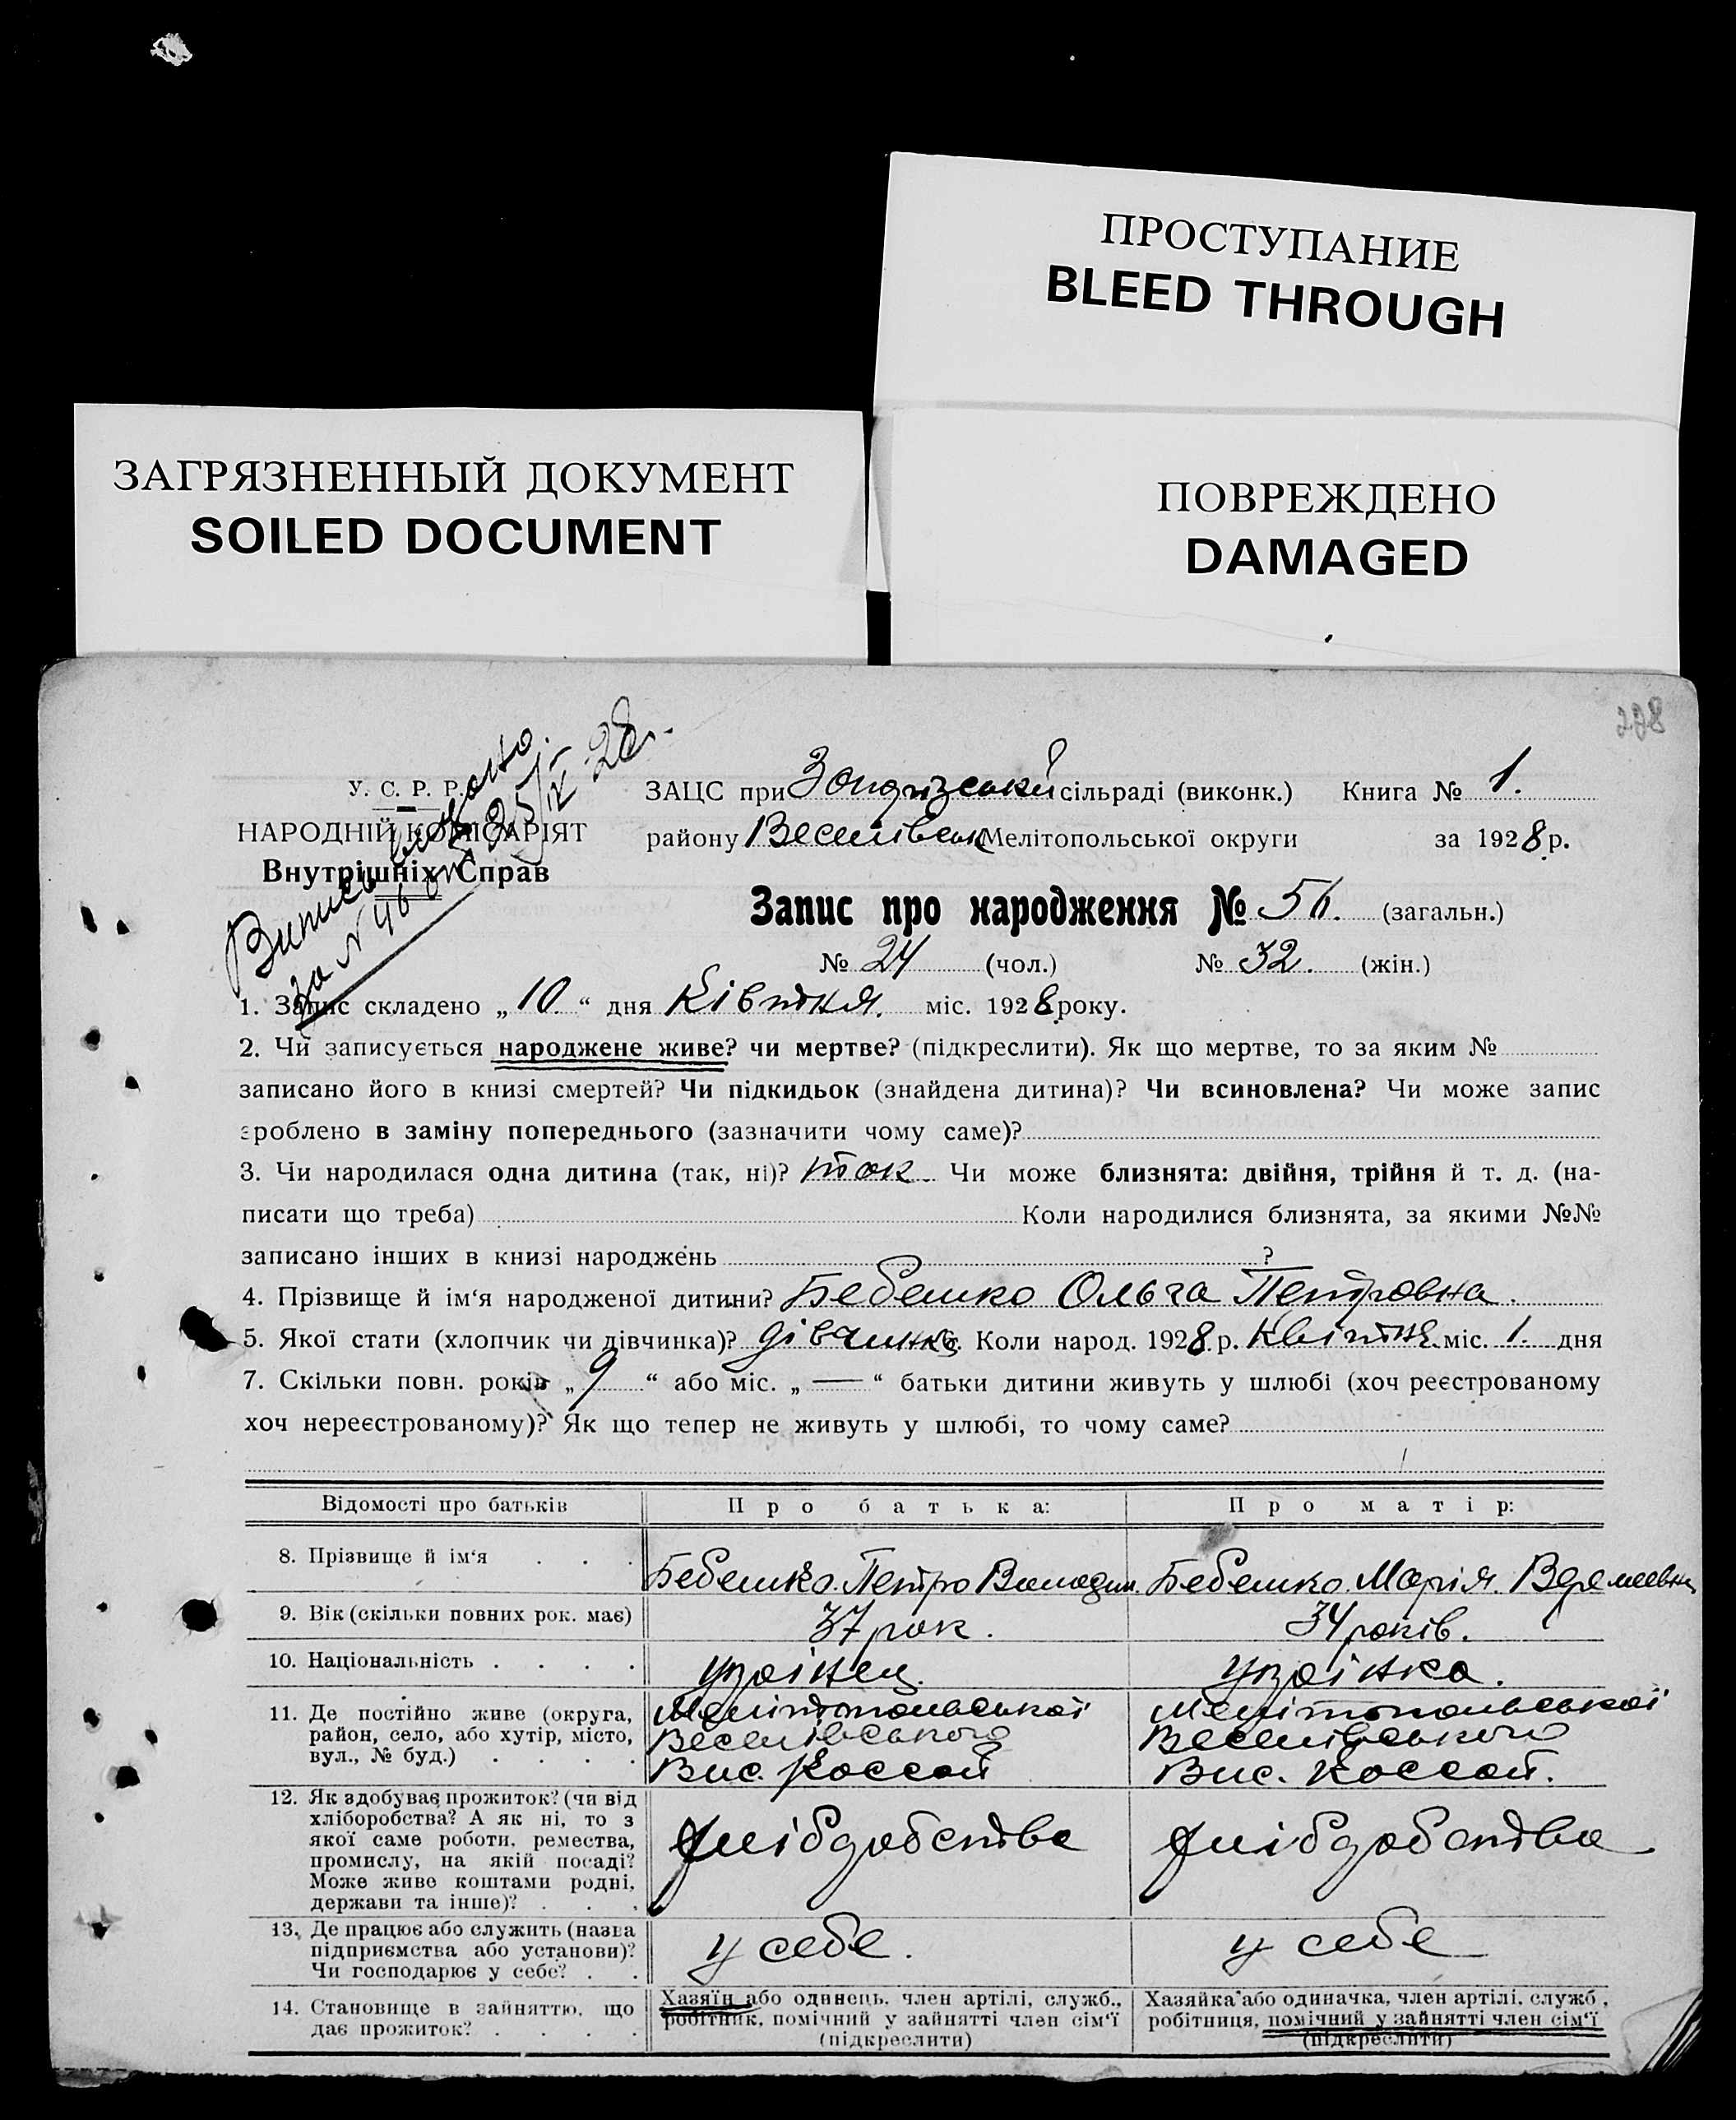 ПРОСТУПАНИЕ
BLEED THROUGH
ЗАГРЯЗНЕННЫЙ ДОКУМЕНТ
SOILED DOCUMENT
ПОВРЕЖДЕНО
DAMAGED
У. С. Р. Р.
НАРОДНІЙ КОМІСАРІЯТ
Внутрішніх Справ
ЗАЦС при сільраді (виконк.) Книга № 1.
району Веселівськ Мелітопольської округи за 1928 р.
Запис про народження № 56. (загальн.)
№ 24 (чол.) № 32. (жін.)
1. Запис складено „ 10 “ дня Квітня. міс. 1928 року.
2. Чи записується народжене живе? чи мертве? (підкреслити). Як що мертве, то за яким №
записано його в книзі смертей? Чи підкидьок (знайдена дитина)? Чи всиновлена? Чи може запис
зроблено в заміну попереднього (зазначити чому саме)?
3. Чи народилася одна дитина (так, ні)? так Чи може близнята: двійня, трійня й т. д. (на-
писати що треба) Коли народилися близнята, за якими №№
записано інших в книзі народжень ?
4. Прізвище й ім‘я народженої дитини? Бебешко Ольга Петровна.
5. Якої стати (хлопчик чи дівчинка)? дівчинка 6. Коли народ. 1928 р. Квітня міс. 1. дня
7. Скільки повн. років „ 9 “ або міс. „ — “ батьки дитини живуть у шлюбі (хоч реєстрованому
хоч нереєстрованому)? Як що тепер не живуть у шлюбі, то чому саме?
Відомості про батьків Про батька: Про матір:
8. Прізвище й ім‘я . . . Бебешко Петро Бебешко Марія
9. Вік (скільки повних рок. має) 37 рок. 34 років.
10. Національність . . . . украінец. украінка.
11. Де постійно живе (округа, район, село, або хутір, місто, вул., № буд.) . . . . Мелітопольської Веселівського Вис. Мелітопольської Веселівського Вис.
12. Як здобуває прожиток? (чи від хліборобства? А як ні, то з якої саме роботи, ремества, промислу, на якій посаді? Може живе коштами родні, держави та інше)? . . .
13. Де працює або служить (назва підприємства або установи)? Чи господарює у себе? . . у себе. у себе
14. Становище в зайняттю, що дає прожиток? . . . . Хазяїн або одинець, член артілі, служб., робітник, помічний у зайнятті член сім‘ї (підкреслити) Хазяйка або одиначка, член артілі, служб., робітниця, помічний у зайнятті член сім‘ї (підкреслити)